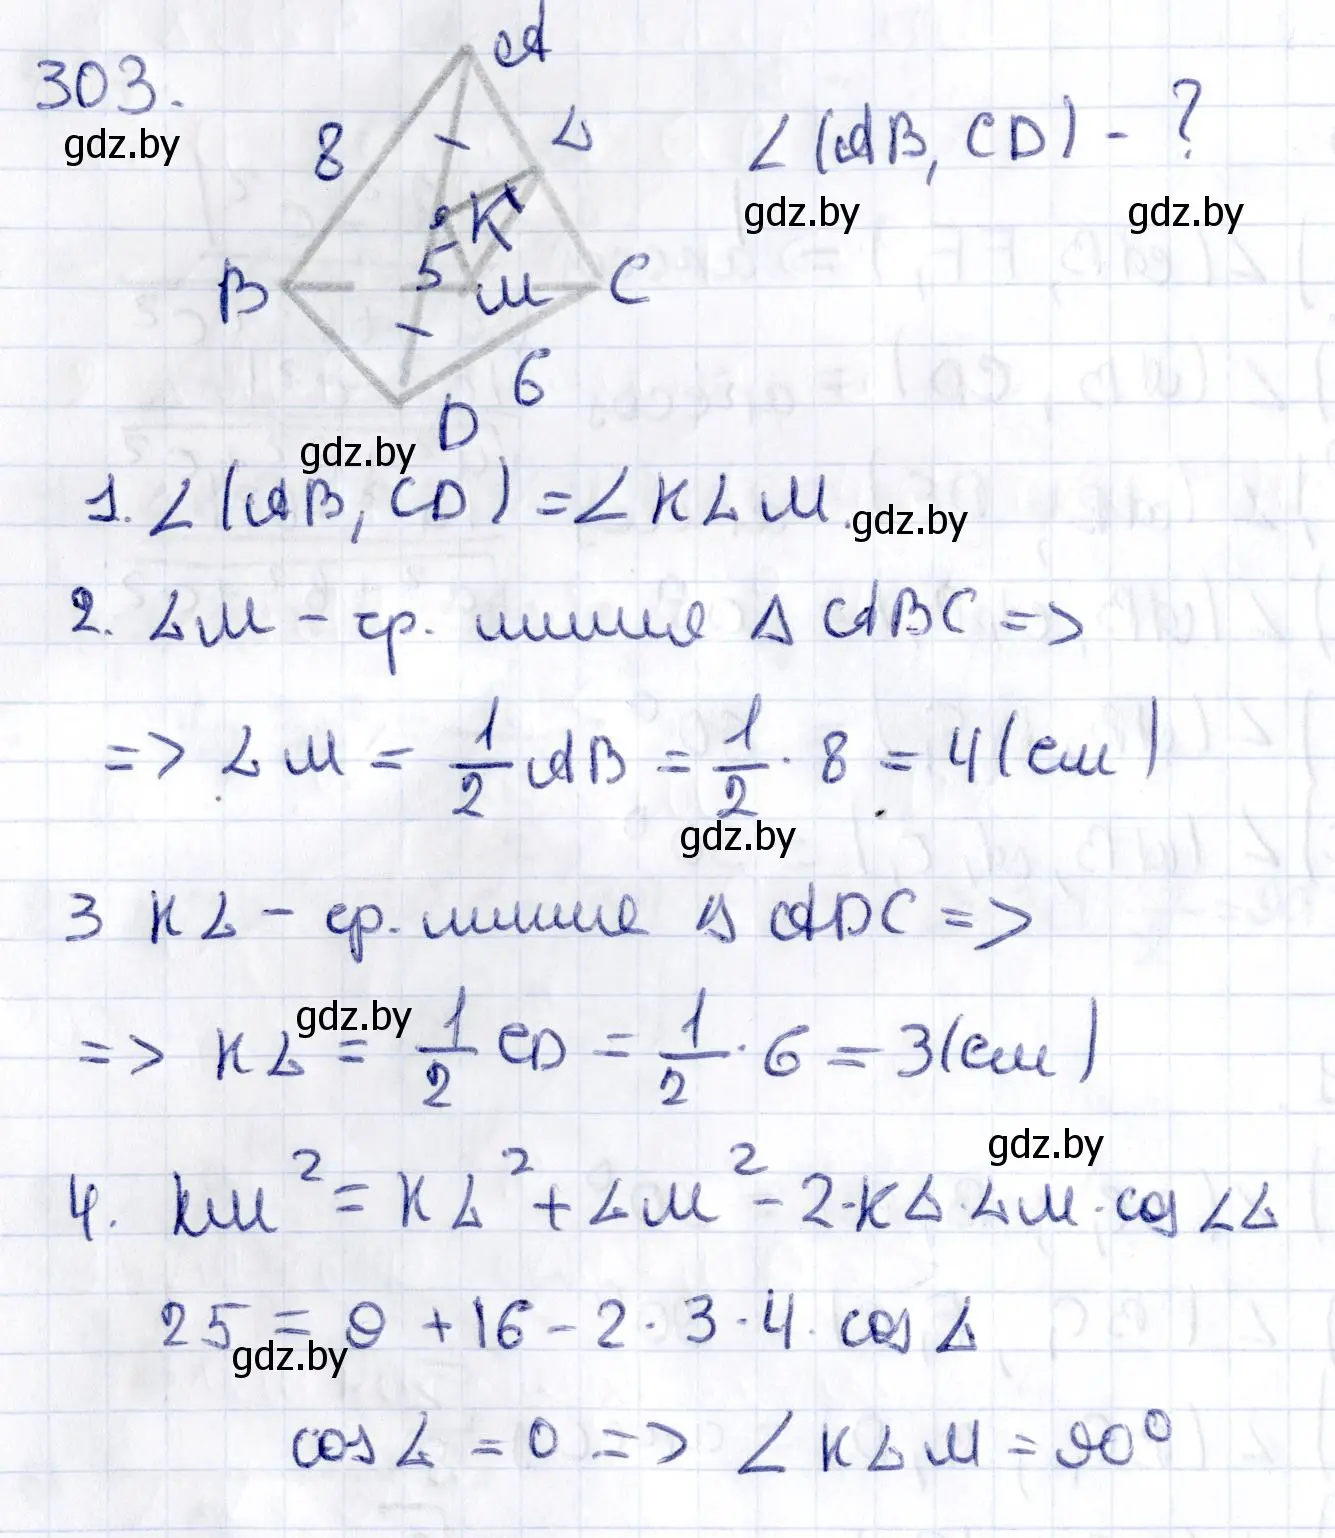 303.
gdz.by
A
8
L
∠(AB, CD) - ?
gdz.by
gdz.by
K
5
B
M
C
6
D
gdz.by
1. ∠(AB, CD) = ∠KLM.
gdz.by
2. LM - ср. линия Δ ABC =>
=> LM = 1/2 AB = 1/2 · 8 = 4(см)
gdz.by
3 KL - ср. линия Δ ADC =>
gdz.by
=> KL = 1/2 CD = 1/2 · 6 = 3(см)
gdz.by
4. KM² = KL² + LM² - 2·KL·LM·cos∠L
25 = 9 + 16 - 2·3·4·cos L
gdz.by
cos L = 0 => ∠KLM = 90°